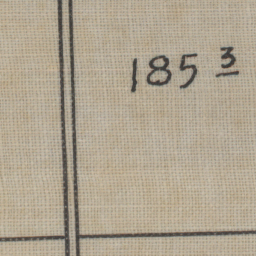 185 3